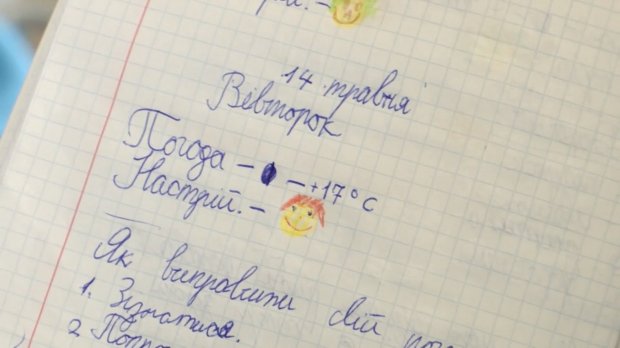 14 травня
Вівторок
Погода - - +17°C
Настрій. -
Як виправити свій
1. Зізнатися.
2